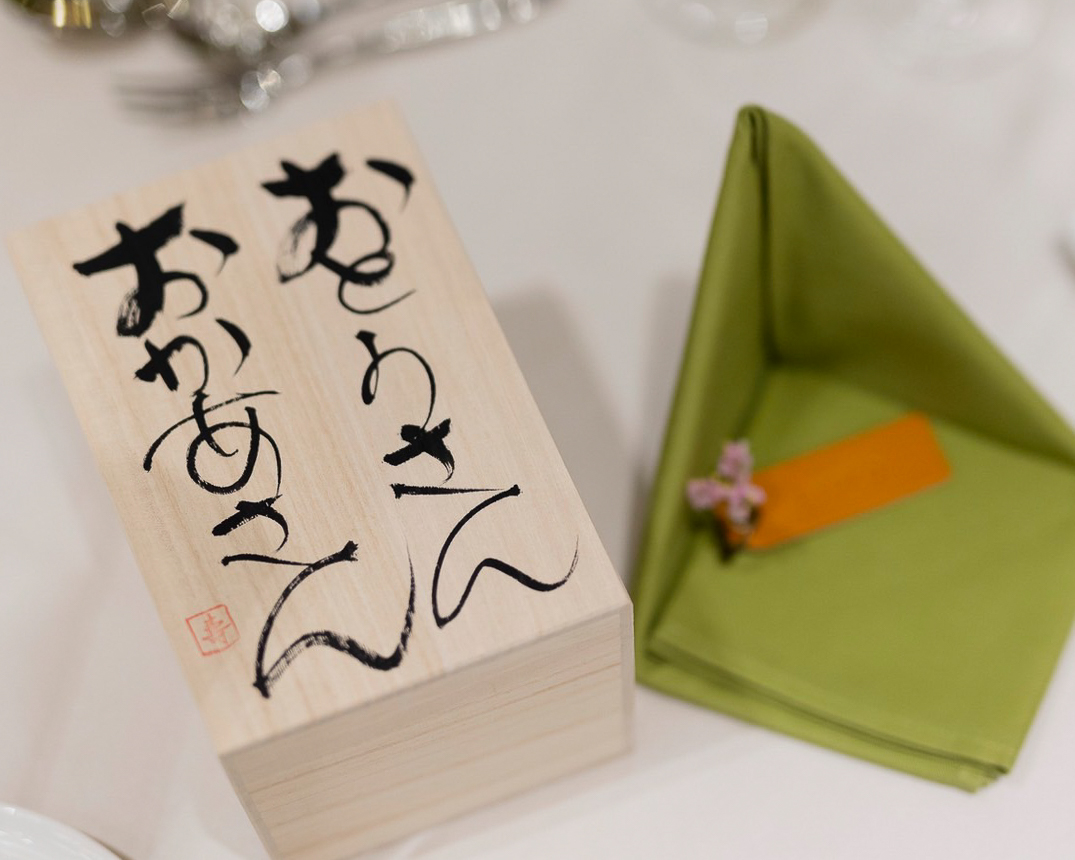 おとうさん
おかあさん
寿